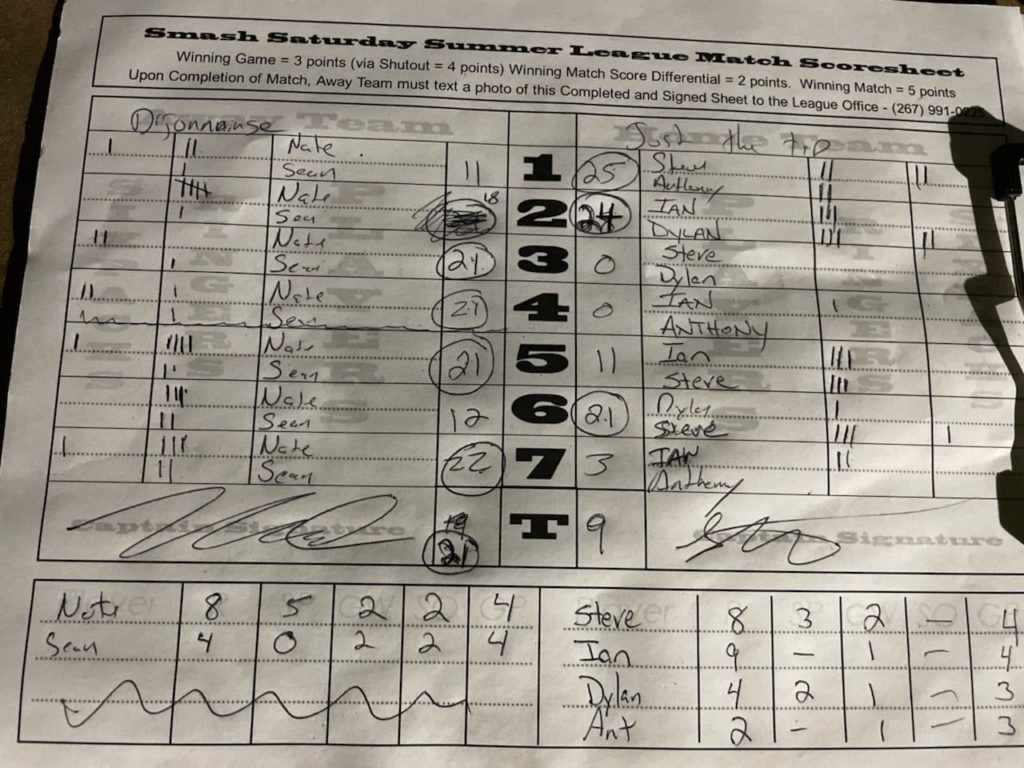 Smash Saturday Summer League Match Scoresheet
Winning Game = 3 points (via Shutout = 4 points) Winning Match Score Differential = 2 points. Winning Match = 5 points
Upon Completion of Match, Away Team must text a photo of this Completed and Signed Sheet to the League Office - (267) 991-0225
Team Home Team
Just the
Nate Steve
Sean 11 1 25 Anthony
Nate 18 IAN
Sea 2 24 DYLAN
Nate Steve
Sean 21 3 0 Dylan
Nate IAN
Sean 4 0 ANTHONY
Nate Ian
Sean 21 5 11 Steve
Nate Dylan
Sean 12 6 21 Steve
Nate IAN
Sean 22 7 3 Anthony
Captain Signature 21 T 9 Captain Signature
Nate 8 5 2 2 4 Steve 8 3 2 — 4
Sean 4 0 2 2 4 Ian 9 — 1 — 4
Dylan 4 2 1 — 3
Ant 2 — 1 — 3